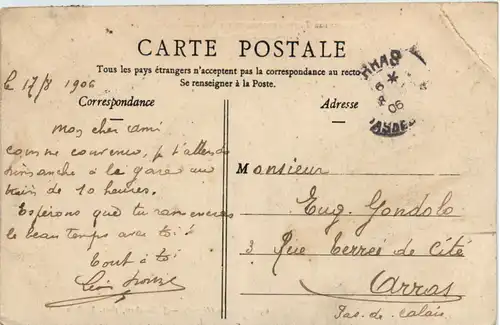 CARTE POSTALE
Tous les pays étrangers n'acceptent pas la correspondance au recto
Se renseigner à la Poste.
Correspondance
Adresse
le 17/8 1906
Mon cher ami
comme convenu, je t'attends
dimanche à la gare au
train de 10 heures.
Espérons que tu ramèneras
le beau temps avec toi
Tout à toi
Léon
Monsieur
Eug. Gondolo
3 Rue Terrée de Cité
Arras
Pas-de-Calais
ARRAS
06